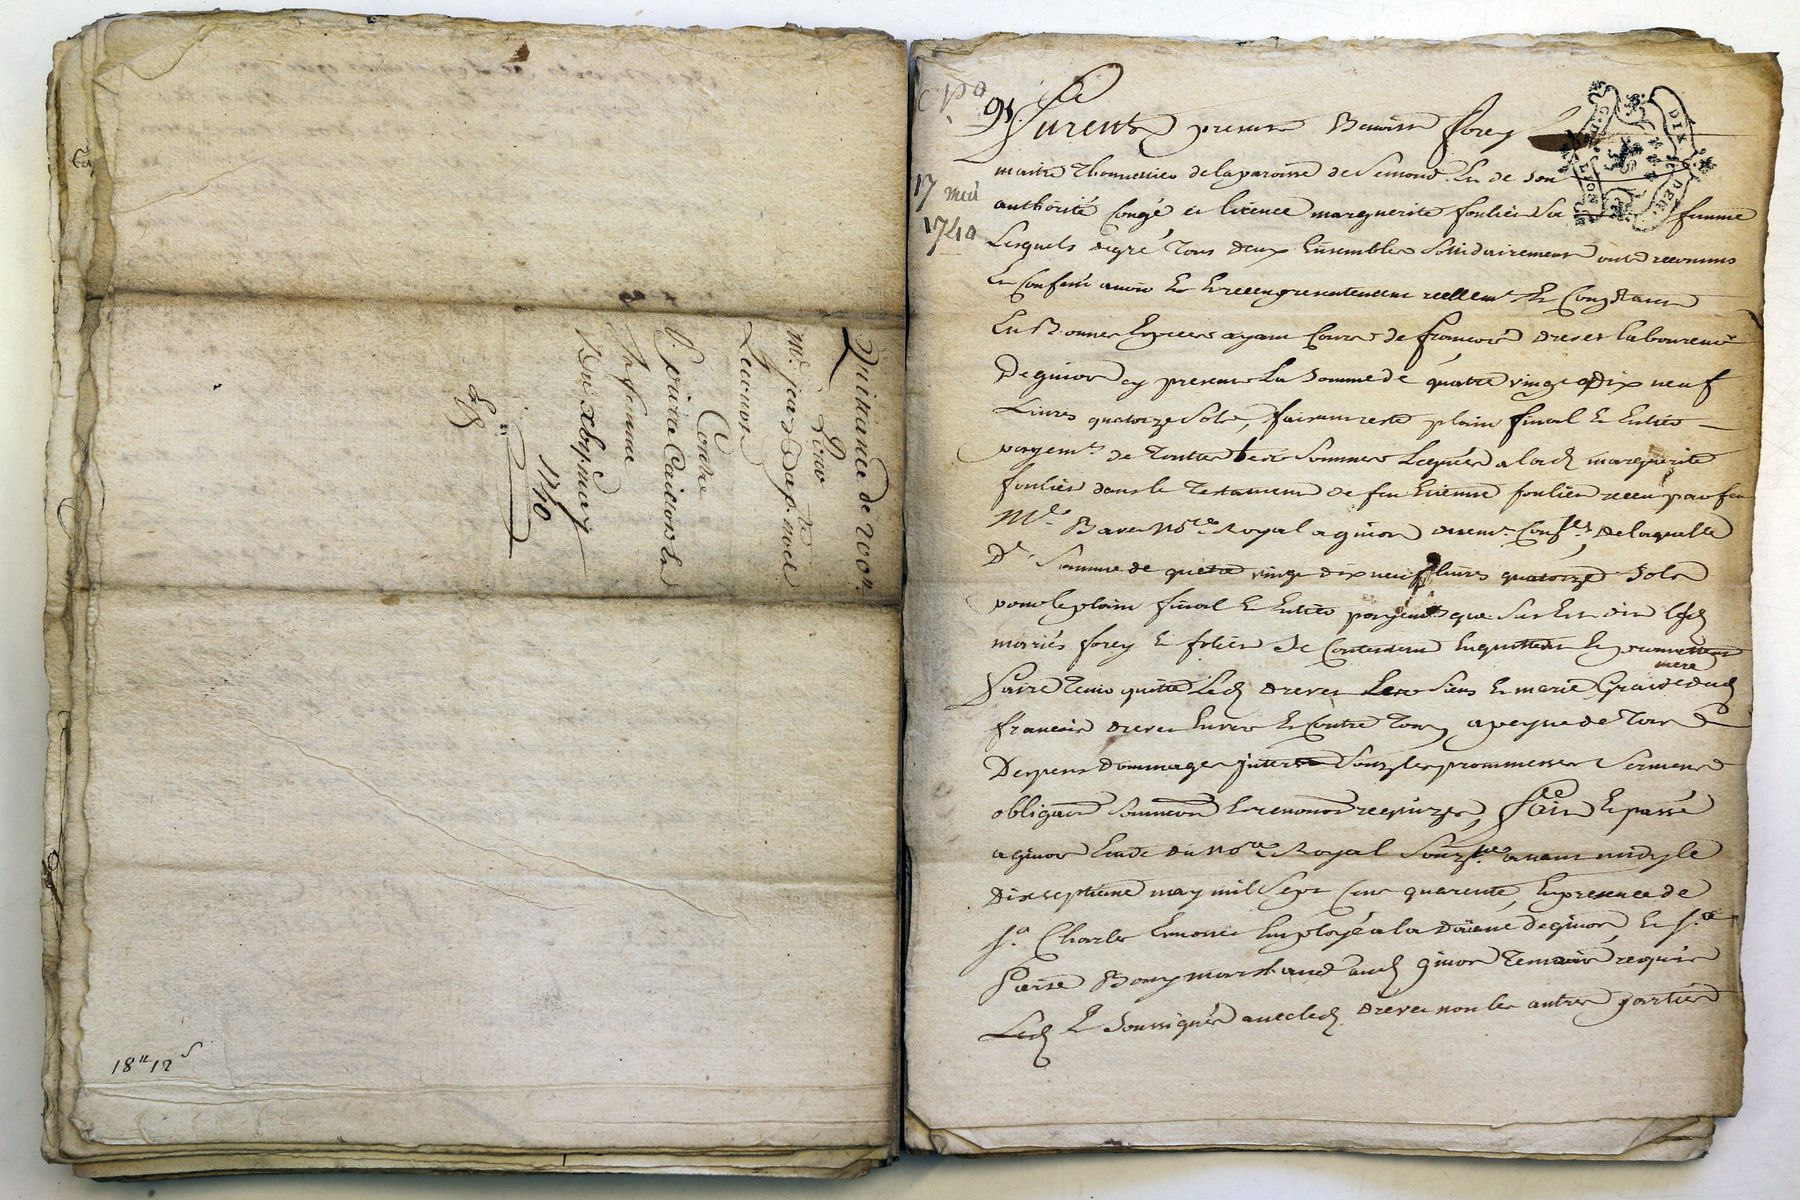 Quittance de 200#
Pour
Mr. jean Bapte. noel
Lecuver
Contre
Sr. poira Caillon &
sa femme
Du xbrj. may
1740
18# 12s
17 mai
1740
Furent present Benoist forey
maitre Thonnellier de la paroisse de Et de Son
authorité Congé et licence marguerite foulier Sa femme
Lesquels degré Tous deux Ensembles Sollidairement ont reconnus
Et Confessé avoir Eu Et receu presentement reellemt. Et Comptant
En Bonnes Especes ayant Cours de francois drevet laboureur
De givor cy present La Somme de quatre vingt dix neuf
Livres quatorze Sols, faisant reste plain final & Entier
payemt. de Toutes les Sommes Leguées a lad marguerite
foulier dans le Testament de feu Etienne foulier receu par feu
Me. Bave Nore. Royal a givor de laquelle
De. Somme de quatre vingt dix neuf livres quatorze Sols
pour le plain final & Entier payement que Sus Est dit lesd
mariés forey & folier Se Contentent En quittent & promettent
mere
faire Tenir quitte Led drevet Les Siens & marie dud
francois drevet Envers & Contre Tous, a peyne de Tous
Despens Dommages interets Sous les prommesses Serment
obligaons Soumions & renonons requizes, fait & passé
a givor Etude du Nore. Royal Souzne. avant midy le
Dix septieme may mil Sept Cent quarente, En presence de
Sr. Charles Employé a la Doüane de givor & Sr.
Pierre Bony marchand aud givor Temoins requis
Led & Soussignés avec led drevet non les autres parties
DIX DEN.